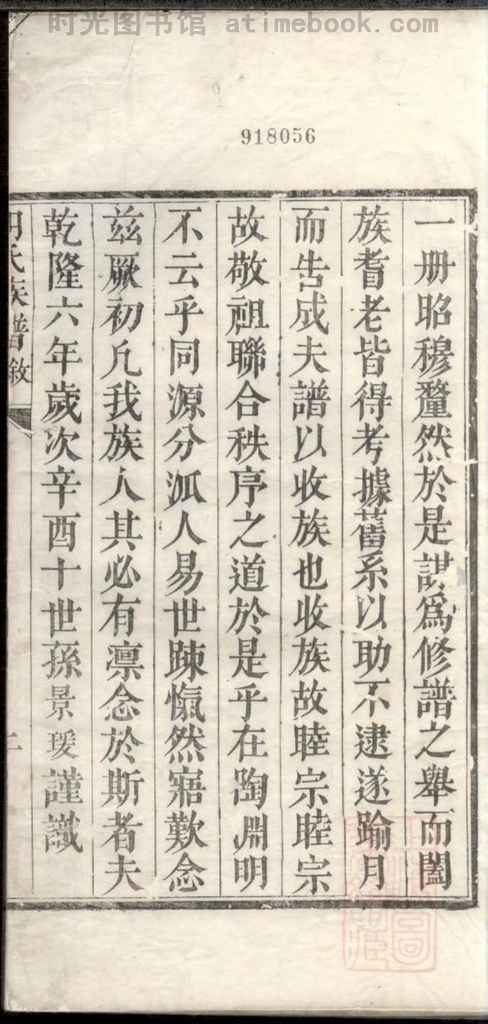 时光图书馆 atimebook.com
918056
一册昭穆釐然於是謀為修譜之舉而闔
族耆老皆得考據舊系以助不逮遂踰月
而告成夫譜以收族也收族故睦宗睦宗
故敬祖聯合秩序之道於是乎在陶淵明
不云乎同源分派人易世踈慨然寤歎念
兹厥初凡我族人其必有凛念於斯者夫
乾隆六年歲次辛酉十世孫景瑗謹識
氏族譜敘
二